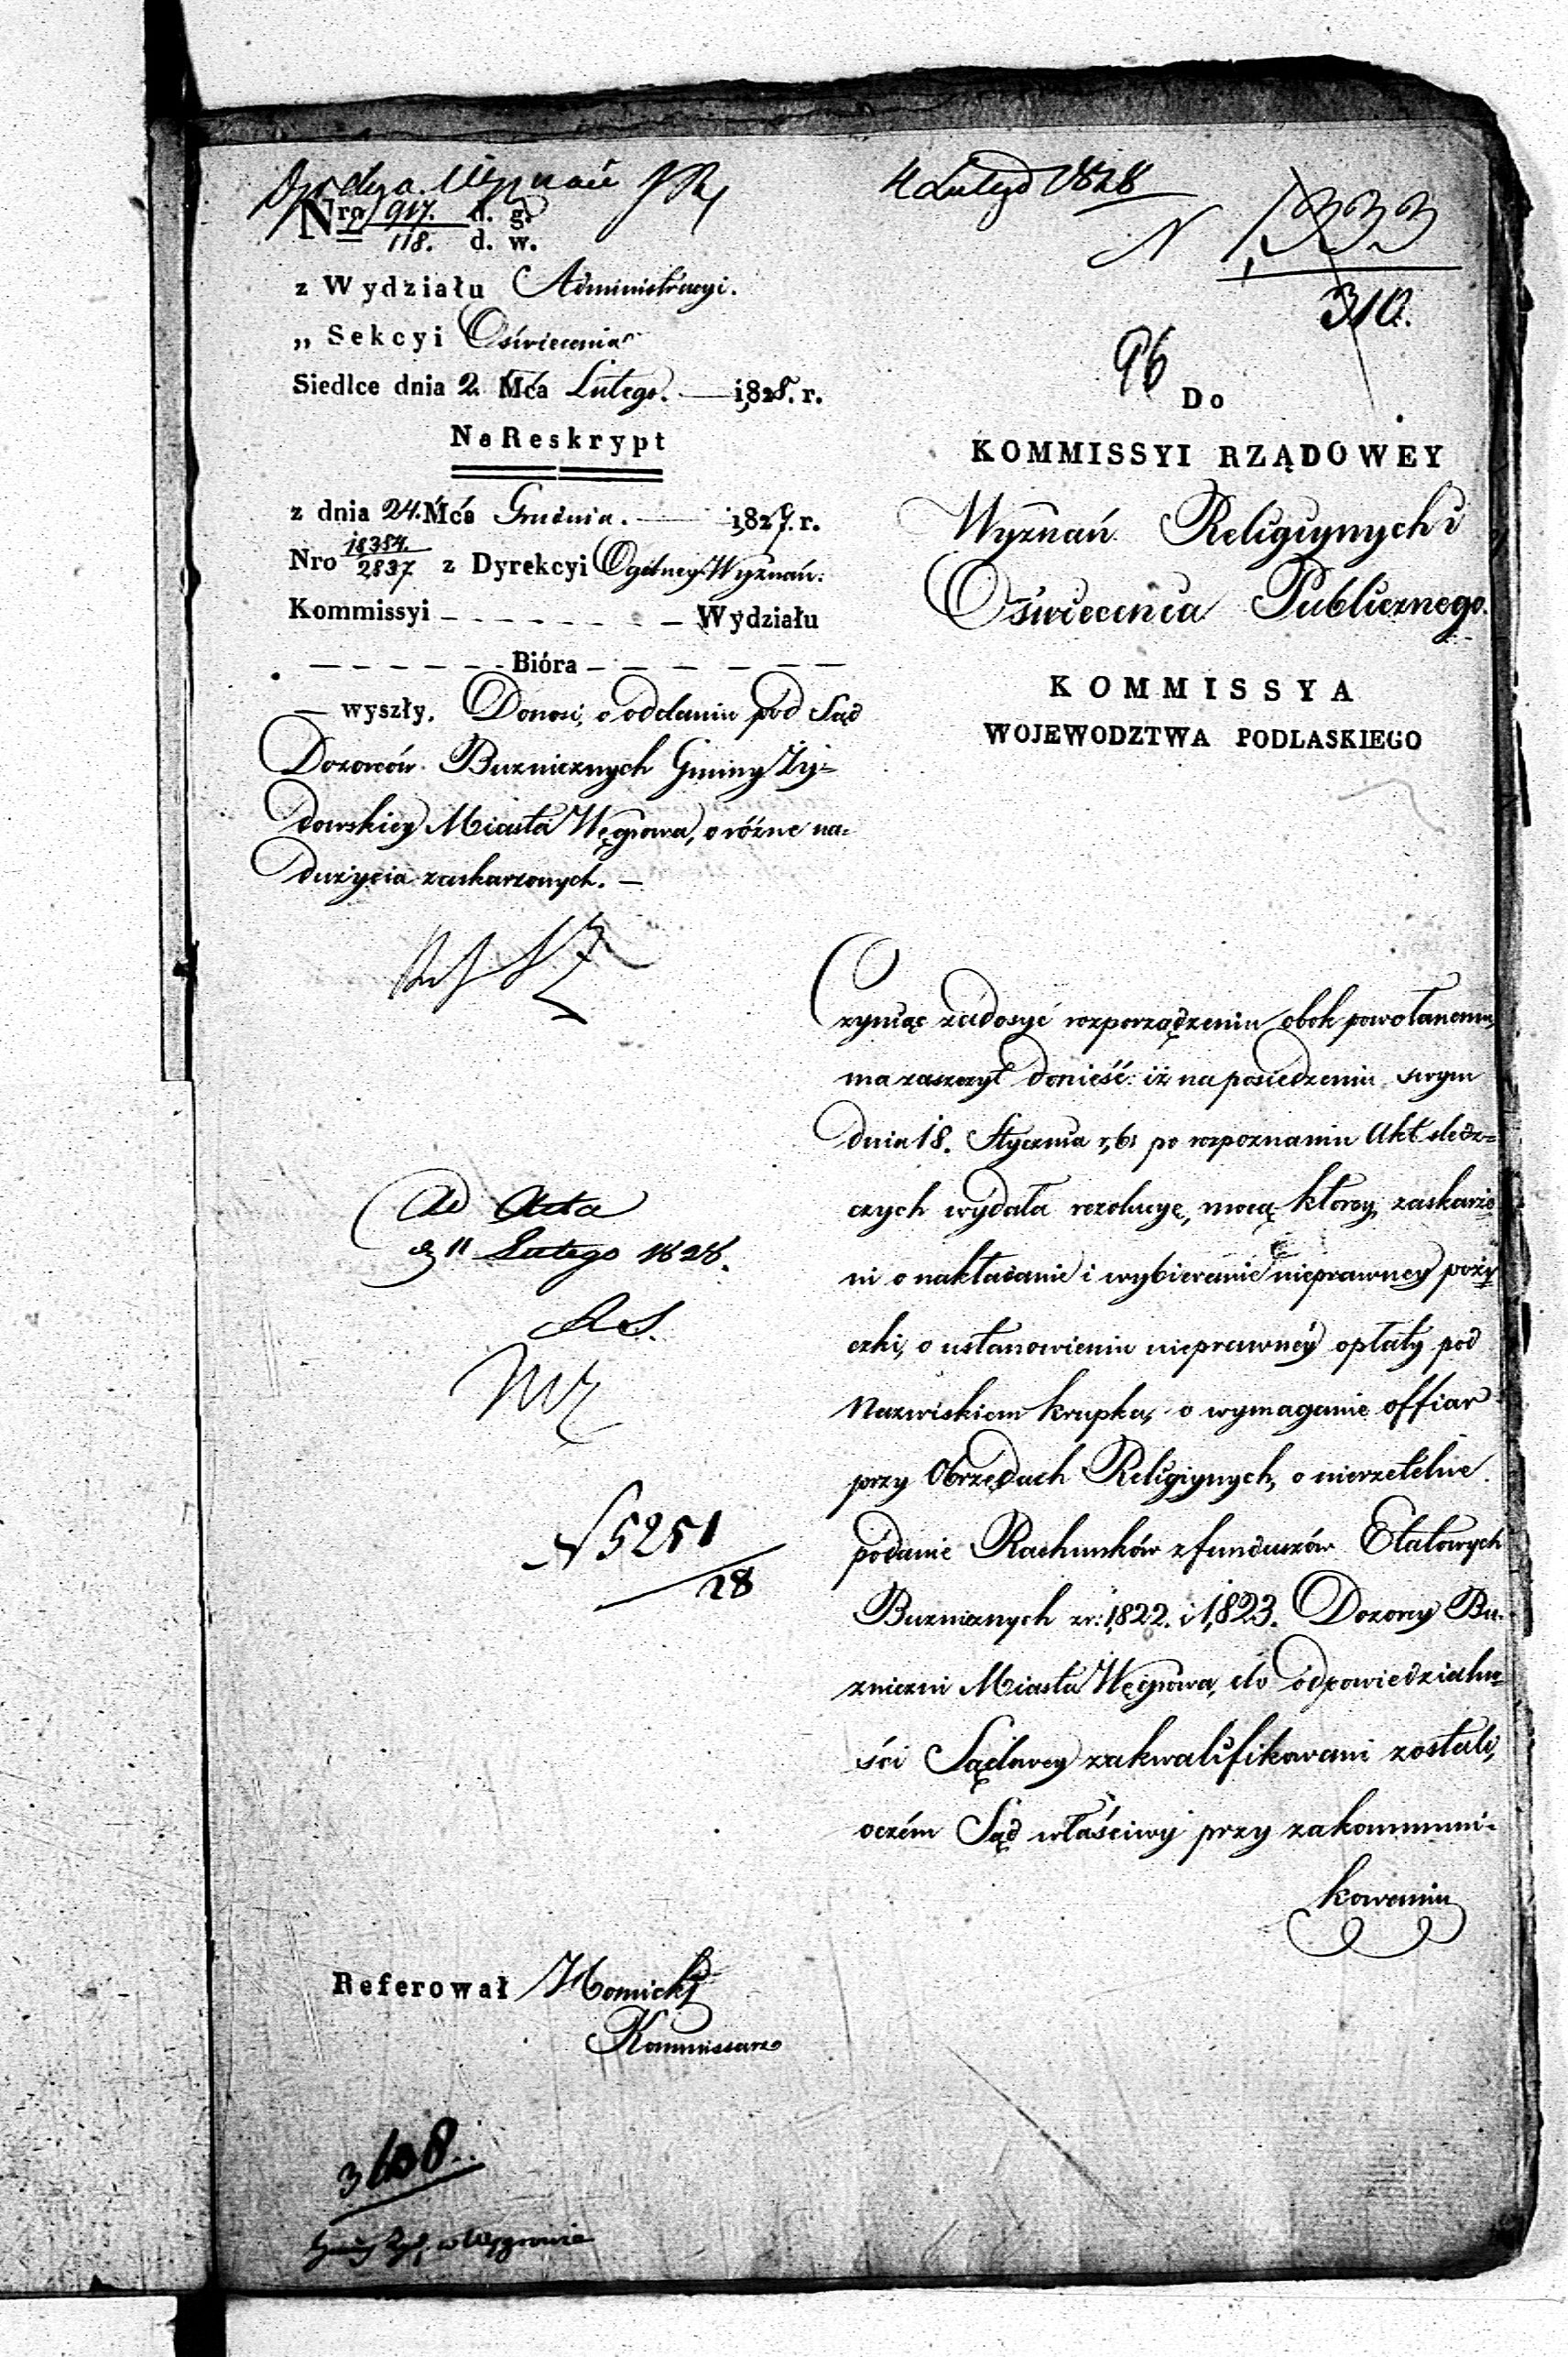 4 Lutego 1828
N 1,333
310.
96
Nro 917. d. g.
118. d. w.
z Wydziału Administracyi.
„ Sekcyi Oświecenia
Siedlce dnia 2. Mca Lutego. — 1828. r.
Na Reskrypt
z dnia 24. Mca Grudnia. — 1827. r.
Nro 18384./2837 z Dyrekcyi Ogólney Wyznań.
Kommissyi — Wydziału
— Bióra —
— wyszły. Donosi, o oddaniu pod Sąd
Dozorców Buznicznych Gminy Ży-
dowskiey Miasta Węgrowa, o różne na-
dużycia zaskarzonych. —
Ad Acta
d 11 Lutego 1828.
N 5251
28
Referował
Kommissarz
3108.
Gminy Żyd. w Węgrowie
Do
KOMMISSYI RZĄDOWEY
Wyznań Religiynych i
Oświecenia Publicznego.
KOMMISSYA
WOJEWODZTWA PODLASKIEGO
Czyniąc zadosyć rozporządzeniu obok powołanemu,
ma zaszczyt donieść: iż na posiedzeniu swym
dnia 18. Stycznia r, b, po rozpoznaniu Akt śledz=
czych wydała rezolucyę, mocą którey, zaskarżo
ni o nakładanie i wybieranie nieprawney poży
czki, o ustanowieniu nieprawnéy opłaty pod
Nazwiskiem krupka, o wymaganie offiar
przy Obrzędach Religiynych, o nierzetelne
podanie Rachunków z funduszów Etatowych
Buznicznych zr: 1,822. i 1,823. Dozorcy Bu-
zniczni Miasta Węgrowa, do odpowiedzialno=
ści Sądowey zakwalifikowani zostali,
oczém Sąd właściwy przy zakommuni-
kowaniu